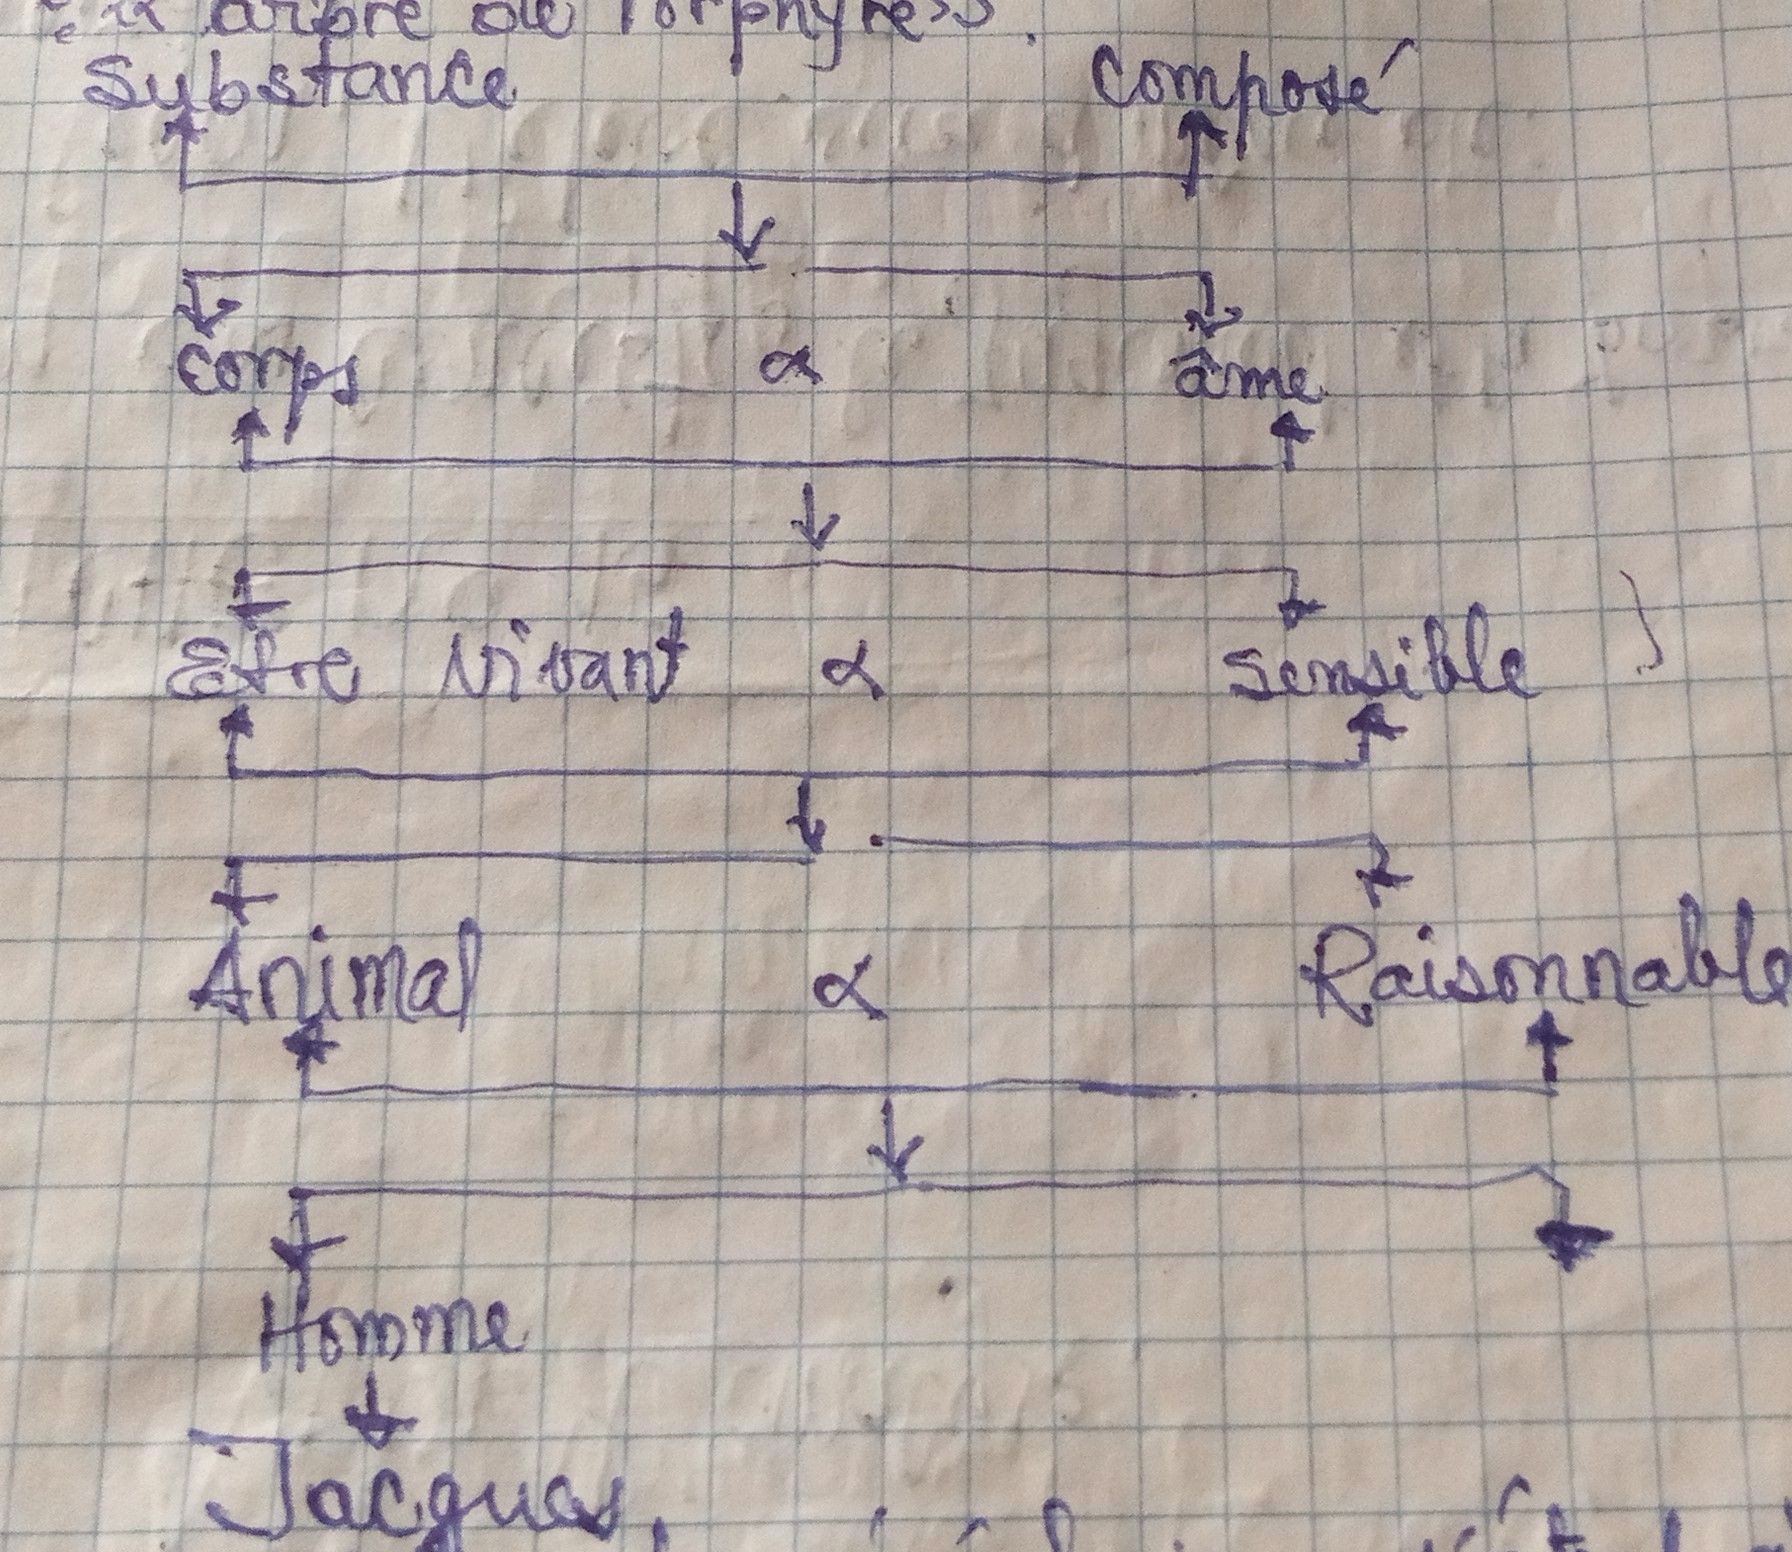 arbre de Porphyre».
Substance Composé
Corps α âme
Etre vivant α sensible
Animal α Raisonnable
Homme
Jacques